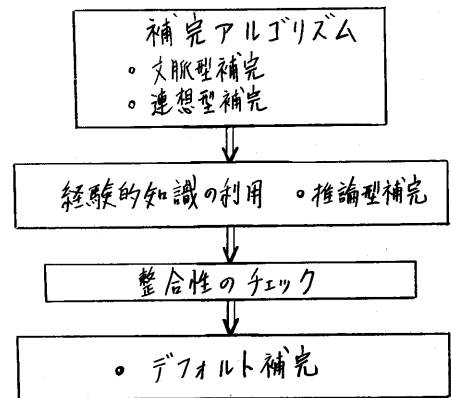 補完アルゴリズム
・文脈型補完
・連想型補完
経験的知識の利用 ・推論型補完
整合性のチェック
・デフォルト補完